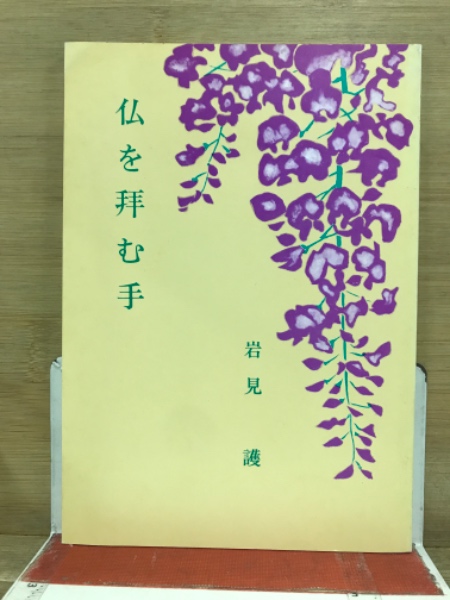 仏を拝む手
岩見 護